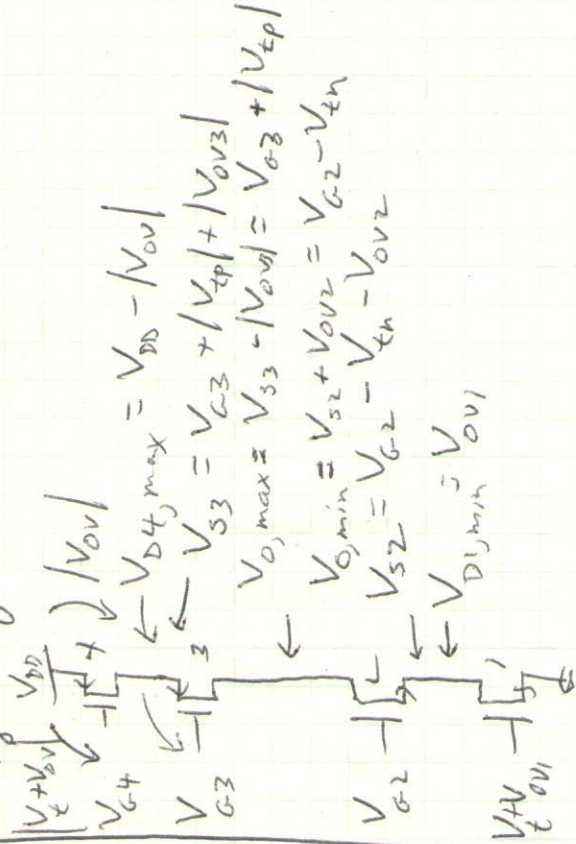 |V_t+V_OV|
V_DD
|V_OV|
V_G4
4
V_D4,max = V_DD - |V_OV|
V_S3 = V_G3 + |V_tp| + |V_OV3|
V_G3
3
V_O,max = V_S3 - |V_OV3| = V_G3 + |V_tp|
V_O,min = V_S2 + V_OV2 = V_G2 - V_tn
V_G2
2
V_S2 = V_G2 - V_tn - V_OV2
V_D1,min = V_OV1
V_t+V_OV1
1